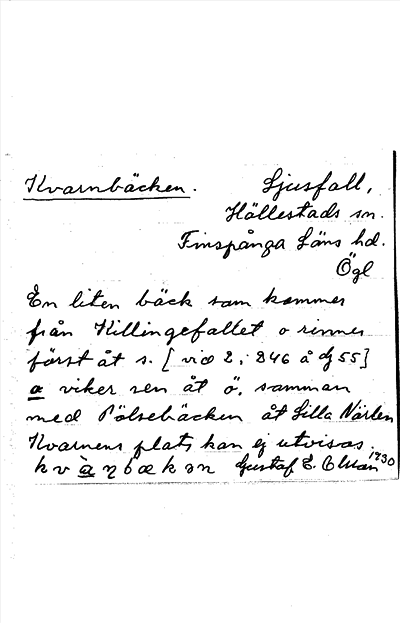 Kvarnbäcken. Ljusfall,
Hällestads sn.
Finspånga Läns hd.
Ögl
En liten bäck som kommer
från Killingefallet o rinner
först åt s. [vid 2,846 å dj 55]
a viker sen åt ö, samman
med Pölsebäcken åt Lilla Nären
Kvarnens plats kan ej utvisas.
Gustaf E. 1930